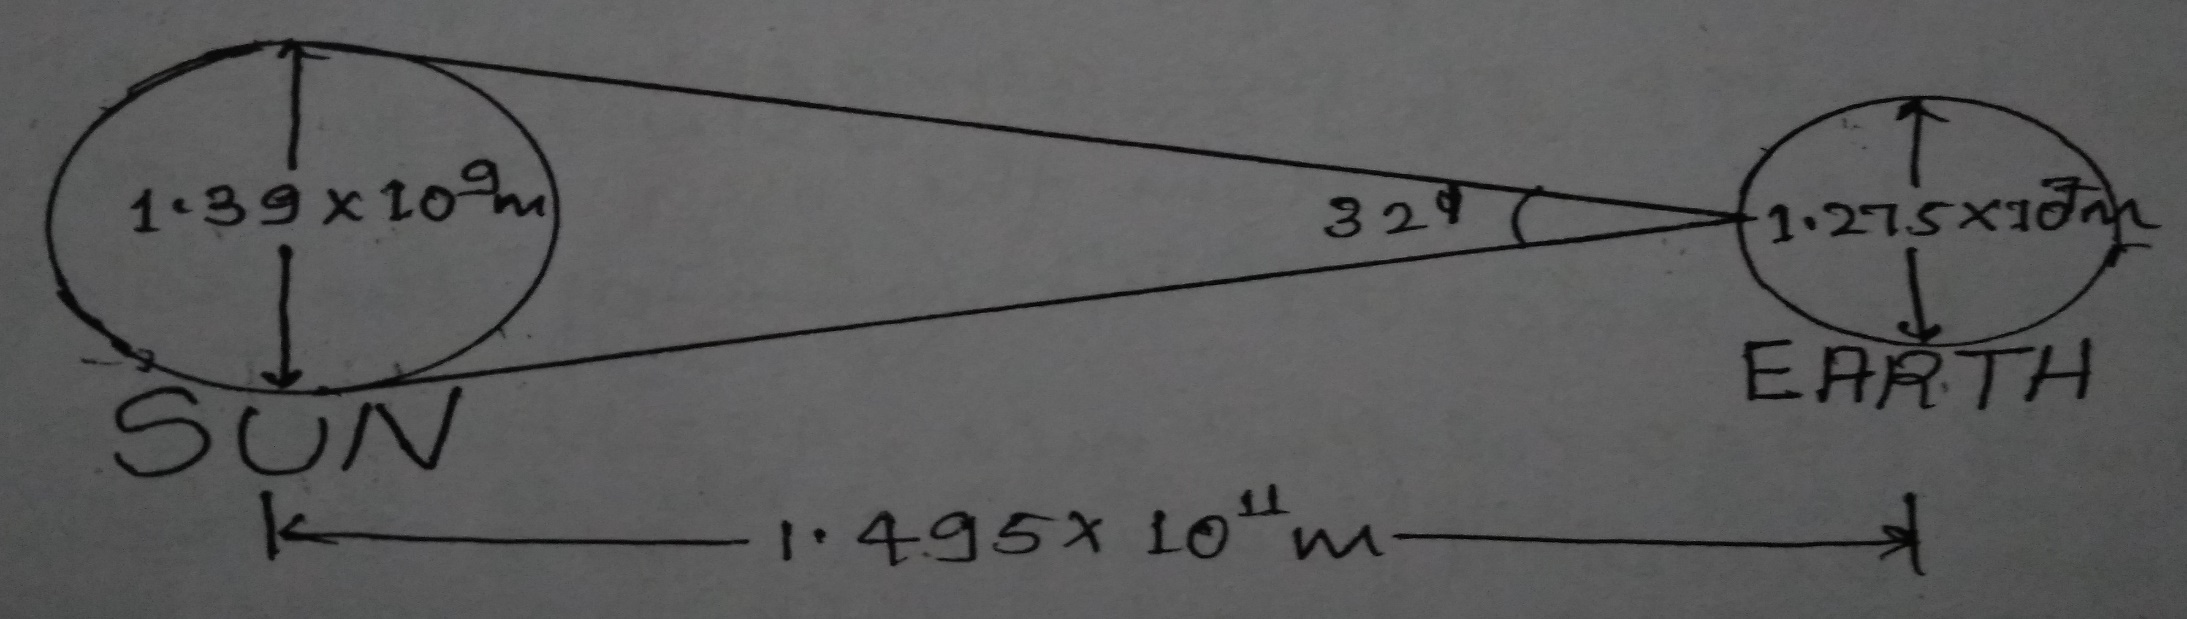 1.39 x 10⁹m
32'
1.275 x 10⁷m
SUN
EARTH
1.495 x 10¹¹m